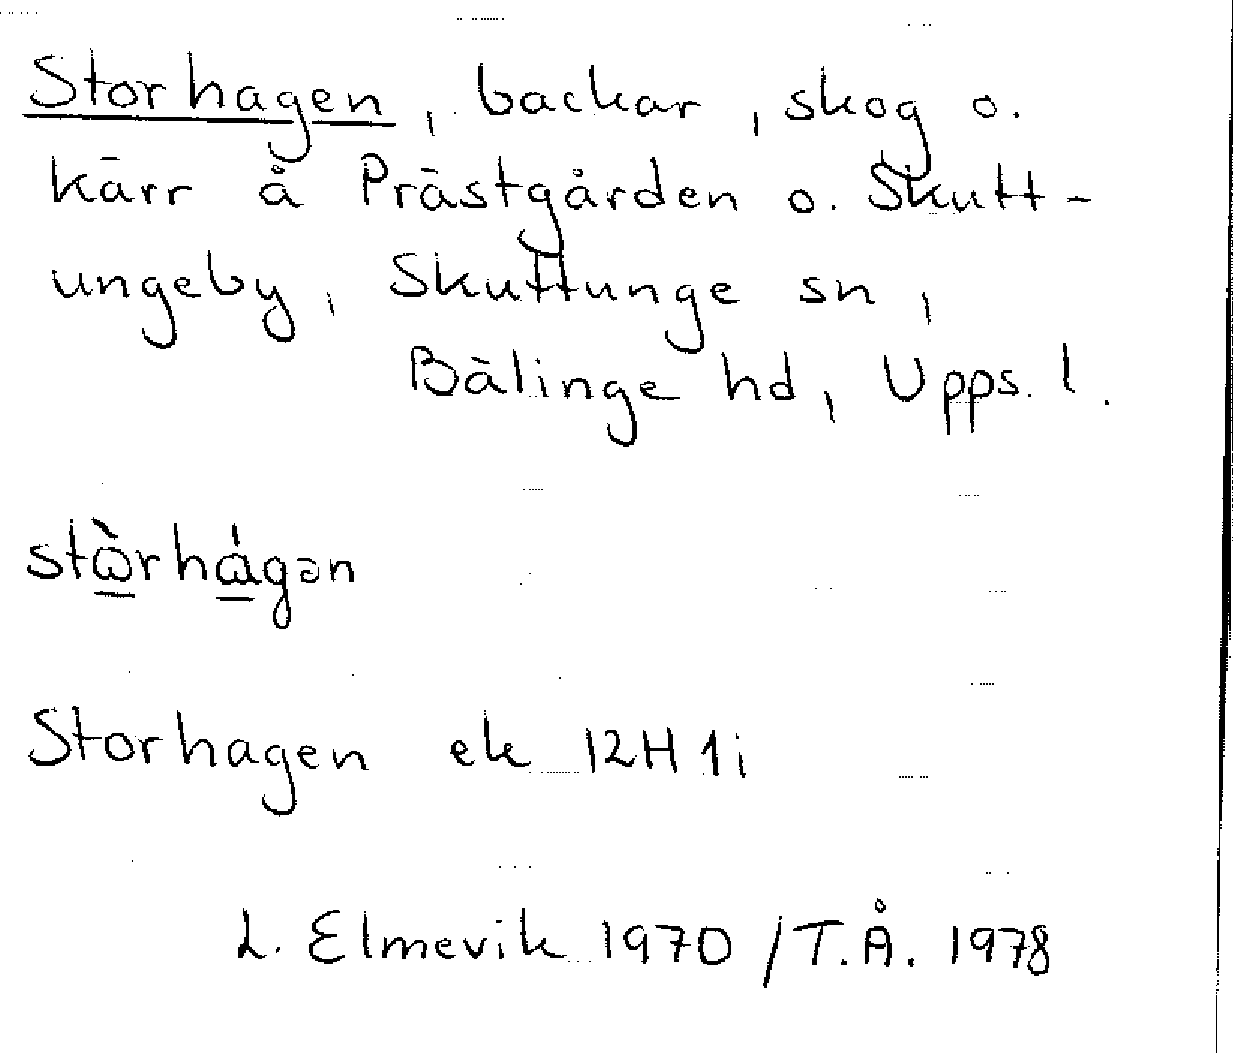 Storhagen, backar, skog o.
kärr å Prästgården o. Skutt-
ungeby, Skuttunge sn,
Bälinge hd, Upps. l.
stɷ̀rhágən
Storhagen ek 12H 1i
L. Elmevik 1970 / T.Å. 1978